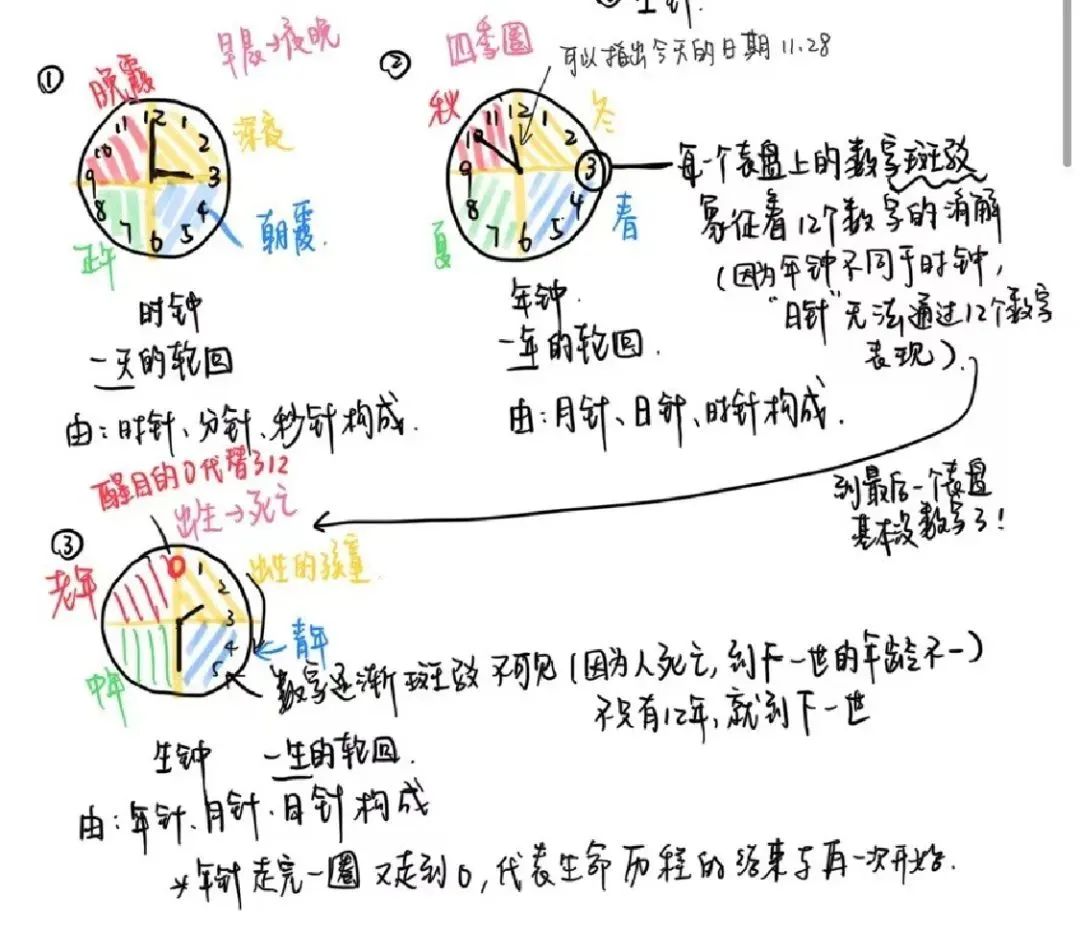 生钟.
①
早晨→夜晚
晚霞
深夜
朝霞.
正午
12 1 2 3 4 5 6 7 8 9 10 11
时钟
一天的轮回
由:时针、分针、秒针构成.
②
四季圈
可以指出今天的日期 11.28
秋
冬
春
夏
12 1 2 3 4 5 6 7 8 9 10 11
年钟.
一年的轮回.
由:月针、日针、时针构成.
每一个表盘上的数字斑驳
象征着12个数字的消解
(因为年钟不同于时钟,
"日针"无法通过12个数字
表现).
到最后一个表盘
基本没数字了!
醒目的0代替了12
出生→死亡
③
老年
出生的孩童
青年
中年
0 1 2 3 4 5
数字逐渐斑驳不可见(因为人死亡,到下一世的年龄不一)
不只有12年,就到下一世
生钟 一生的轮回.
由:年针、月针、日针构成
*年针走完一圈又走到0,代表生命历程的结束与再一次开始.